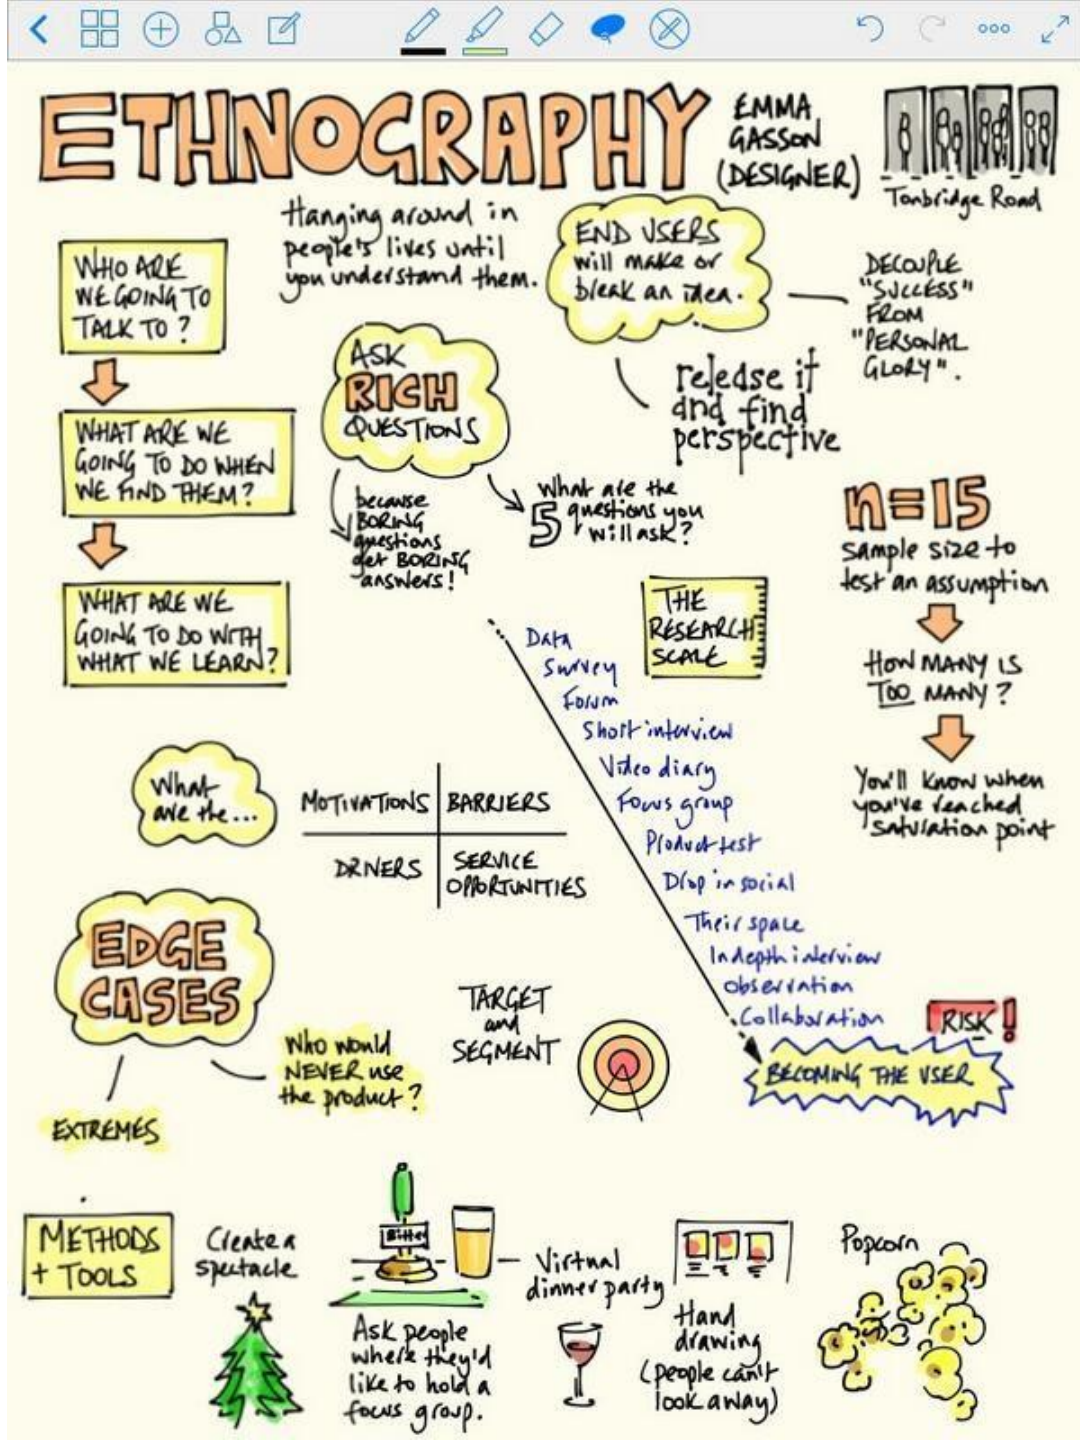 ETHNOGRAPHY
EMMA
GASSON
(DESIGNER)
Tonbridge Road
Hanging around in
people's lives until
you understand them.
END USERS
will make or
break an idea.
DECOUPLE
"SUCCESS"
FROM
"PERSONAL
GLORY".
release it
and find
perspective
WHO ARE
WE GOING TO
TALK TO?
WHAT ARE WE
GOING TO DO WHEN
WE FIND THEM?
WHAT ARE WE
GOING TO DO WITH
WHAT WE LEARN?
ASK
RICH
QUESTIONS
because
BORING
questions
get BORING
answers!
What are the
5 questions you
will ask?
n=15
sample size to
test an assumption
HOW MANY IS
TOO MANY?
You'll know when
you've reached
saturation point
THE
RESEARCH
SCALE
Data
Survey
Forum
Short interview
Video diary
Focus group
Product test
Drop in social
Their space
Indepth interview
Observation
Collaboration
RISK!
BECOMING THE USER
What
are the...
MOTIVATIONS
BARRIERS
DRIVERS
SERVICE
OPPORTUNITIES
EDGE
CASES
EXTREMES
Who would
NEVER use
the product?
TARGET
and
SEGMENT
METHODS
+ TOOLS
Create a
spectacle
Bitter
Ask people
where they'd
like to hold a
focus group.
Virtual
dinner party
Hand
drawing
(people can't
look away)
Popcorn